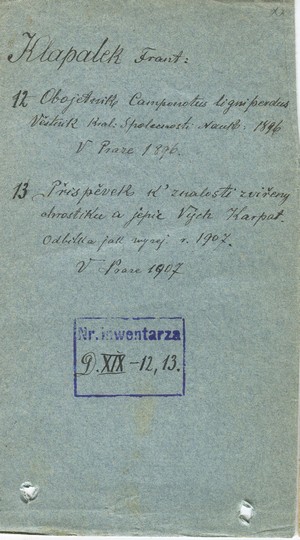 Klapálek Frant:
12 Obojetník Camponotus ligniperdus
Věstník Král. Společnosti Nauk. 1896
V Praze 1896.
13 Příspěvek k' znalosti zvířeny
chrostíků a jepic Vých Karpat.
Odbitka jak wyżej r. 1907.
V Praze 1907
Nr. inwentarza
D. XIX -12, 13.